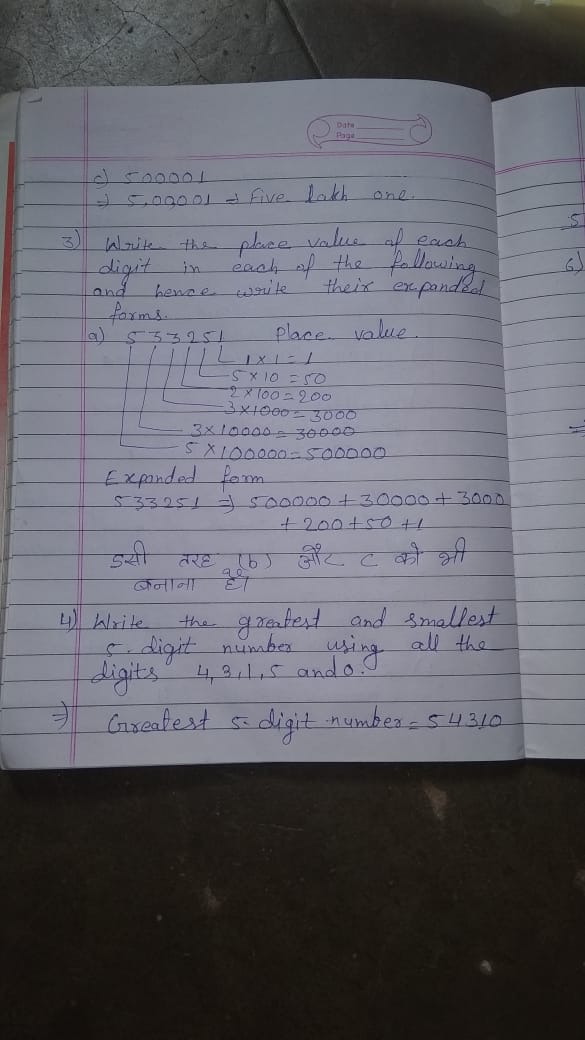 Date
Page
c) 500001
⇒ 5,00001 ⇒ Five lakh one.
3) Write the place value of each
digit in each of the following
and hence write their expanded
forms.
a) 533251 Place value.
1 x 1 = 1
5 x 10 = 50
2 x 100 = 200
3 x 1000 = 3000
3 x 10000 = 30000
5 x 100000 = 500000
Expanded form
533251 ⇒ 500000 + 30000 + 3000
+ 200 + 50 + 1
इसी तरह (b) और c को भी
बनाना है।
4) Write the greatest and smallest
5-digit number using all the
digits 4, 3, 1, 5 and 0.
⇒ Greatest 5-digit number = 54310
5
6)